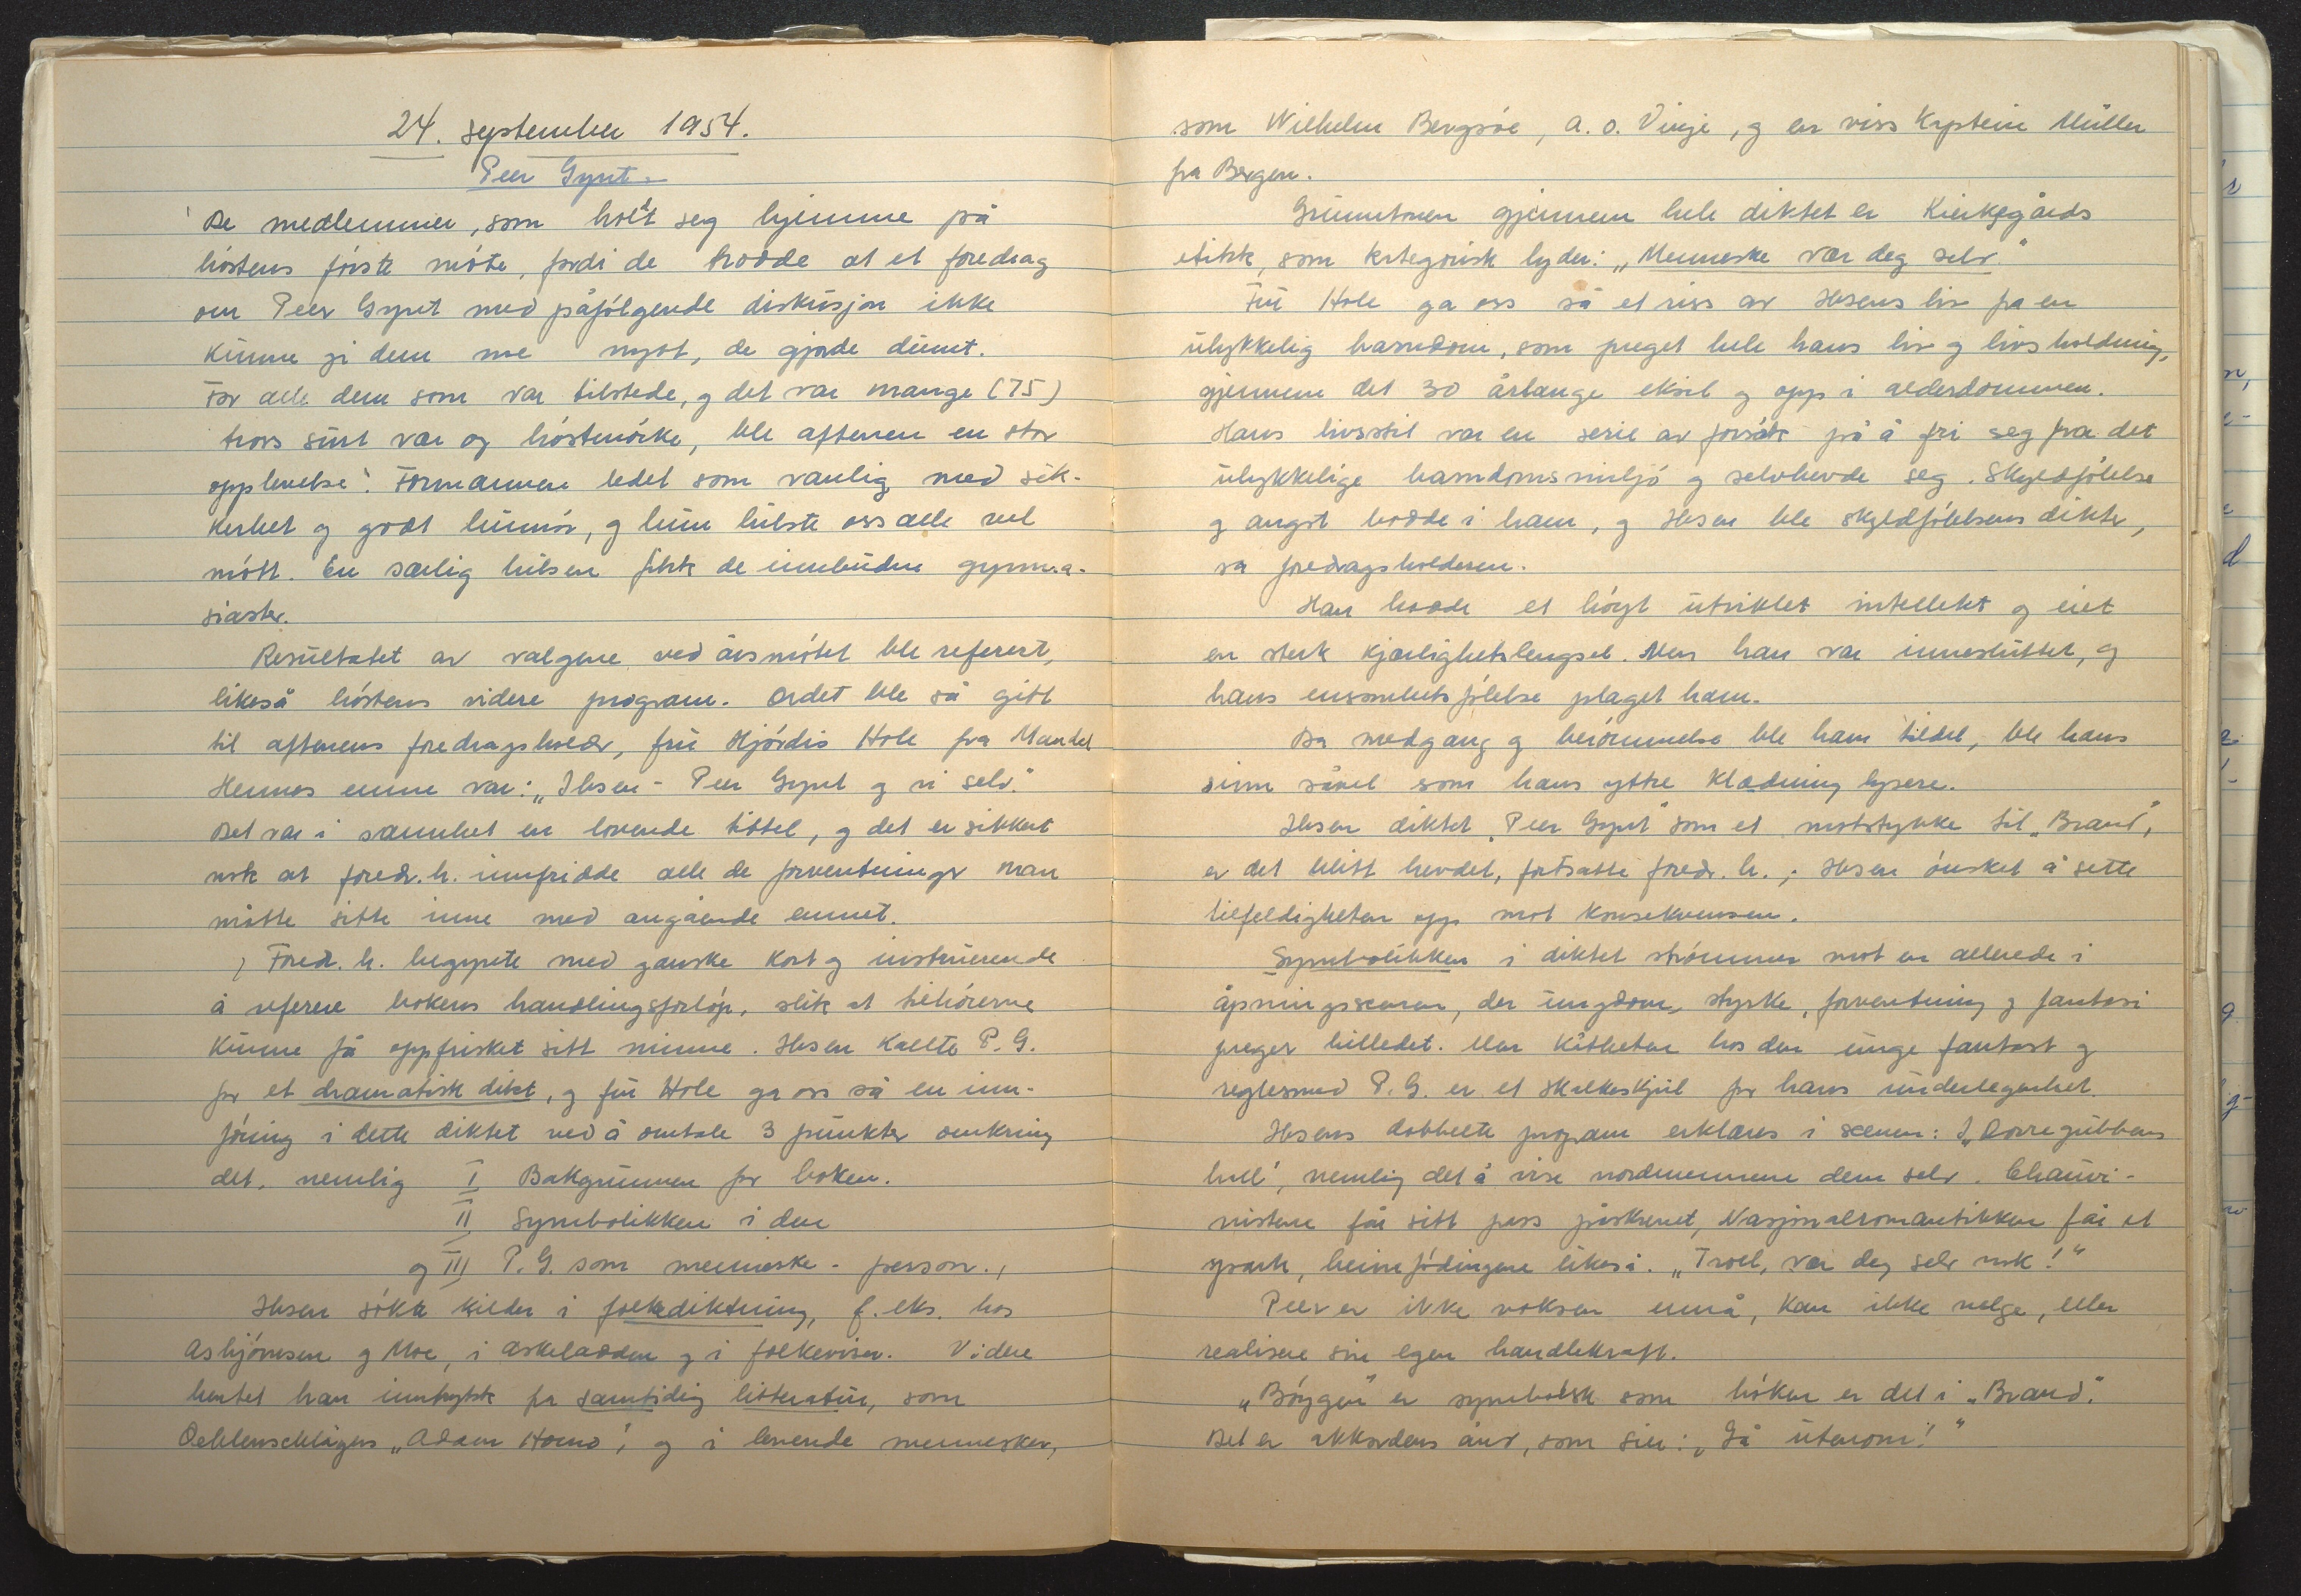 24. september 1954.
Peer Gynt.
De medlemmer, som holdt seg hjemme på
høstens første møte, fordi de trodde at et foredrag
om Peer Gynt med påfølgende diskusjon ikke
kunne gi dem noe nytt, de gjorde dumt.
For alle dem som var tilstede, og det var mange (75)
tross surt vær og høstmørke, ble aftenen en stor
opplevelse. Formannen ledet som vanlig med sik-
kerhet og godt humør, og hun hilste oss alle vel
møtt. En særlig hilsen fikk de innbudne gymna-
siaster.
Resultatet av valgene ved årsmøtet ble referert,
likeså høstens videre program. Ordet ble så gitt
til aftenens foredragsholder, fru Hjørdis Hole fra Mandal
Hennes emne var: „Ibsen - Peer Gynt og vi selv."
Det var i sannhet en lovende tittel, og det er sikkert
nok at foredr. h. innfridde alle de forventninger man
måtte sitte inne med angående emnet.
Foredr. h. begynte med ganske kort og instruerende
å referere bokens handlingsforløp, slik at tilhørerne
kunne få oppfrisket sitt minne. Ibsen kalte P. G.
for et dramatisk dikt, og fru Hole ga oss så en inn-
føring i dette diktet ved å omtale 3 punkter omkring
det, nemlig I Bakgrunnen for boken.
II Symbolikken i den
og III P. G. som menneske - person.
Ibsen søkte kilder i folkediktning, f. eks. hos
Asbjørnsen og Moe, i Askeladden og i folkeviser. Videre
hentet han inntrykk fra samtidig litteratur, som
Oehlenschlägers „Adam Homo", og i levende mennesker,
som Wilhelm Bergsøe, A. O. Vinje, og en viss Kaptein Müller
fra Bergen.
Grunntonen gjennem hele diktet er Kierkegårds
etikk, som kategorisk lyder: „Menneske vær deg selv."
Fru Hole ga oss så et riss av Ibsens liv fra en
ulykkelig barndom, som preget hele hans liv og livsholdning,
gjennem det 30 årlange eksil og opp i alderdommen.
Hans livsstil var en serie av forsøk på å fri seg fra det
ulykkelige barndomsmiljø og selvhevde seg. Skyldfølelse
og angst bodde i ham, og Ibsen ble skyldfølelsens dikter,
sa foredragsholderen.
Han hadde et høyt utviklet intellekt og eiet
en sterk kjærlighetslengsel. Men han var innesluttet, og
hans ensomhetsfølelse plaget ham.
Da medgang og berømmelse ble ham tildel, ble hans
sinn såvel som hans ytre klædning lysere.
Ibsen diktet „Peer Gynt" som et motstykke til „Brand",
er det blitt hevdet, fortsatte foredr. h.; Ibsen ønsket å sette
tilfeldigheten opp mot konsekvensen.
Symbolikken i diktet strømmer mot en allerede i
åpningsscenen, der ungdom, styrke, forventning og fantasi
preger billedet. Men kåtheten hos den unge fantast og
reglesmed P. G. er et skalkeskjul for hans underlegenhet.
Ibsens dobbelte program erklæres i scenen: I „Dovregubbens
hall", nemlig det å vise nordmennene dem selv. Chauvi-
nistene får sitt pass påskrevet, Nasjonalromantikken får et
spark, heimefødingene likeså. „Troll, vær deg selv nok!"
Peer er ikke voksen ennå, kan ikke velge, eller
realisere sin egen handlekraft.
„Bøygen" er symbolsk som høken er det i „Brand."
Det er akkordens ånd, som sier: „Gå utenom!"